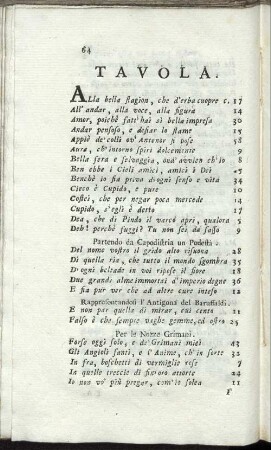 64
TAVOLA.
ALla bella stagion, che d'erba cuopre c. 17
All' andar, alla voce, alla figura 14
Amor, poichè fatt' hai sì bella impresa 30
Andar pensoso, e desiar lo stame 15
Appiè de' colli ov' Antenor si pose 58
Aura, ch' intorno spiri dolcemente 9
Bella fera e selvaggia, ond' avvien ch' io 8
Ben ebbe i Cieli amici, amici i Dei
Benchè io sia privo d' ogni senso e vita 34
Cieco è Cupido, e pure 10
Costei, che per negar poca mercede 14
Cupido, s' egli è detto 17
Dea, che di Pindo il varco apri, qualora 5
Deh! perchè fuggi? Tu non sei da sasso 9
Partendo da Capodistria un Podestà.
Del nome vostro il grido alto risuona 28
Di quella ria, che tutto il mondo sgombra 35
D'ogni beltade in voi ripose il fiore 18
Due grande alme immortai d' imperio degne 36
E fia pur ver che ad altre cure inteso 12
Rappresentandosi l'Antigona del Baruffaldi.
E non par quella di mirar, cui cento 11
Falso è che sempre vaghe gemme, ed ostro 25
Per le Nozze Grimani.
Forse oggi solo, e de' Grimani miei 43
Gli Angioli santi, e l' Anime, ch' in sorte 32
In fra, boschetti di vermiglie rose 7
In quelle treccie di fin'oro attorte 24
Io non vo' più pregar, com' io solea 11
F